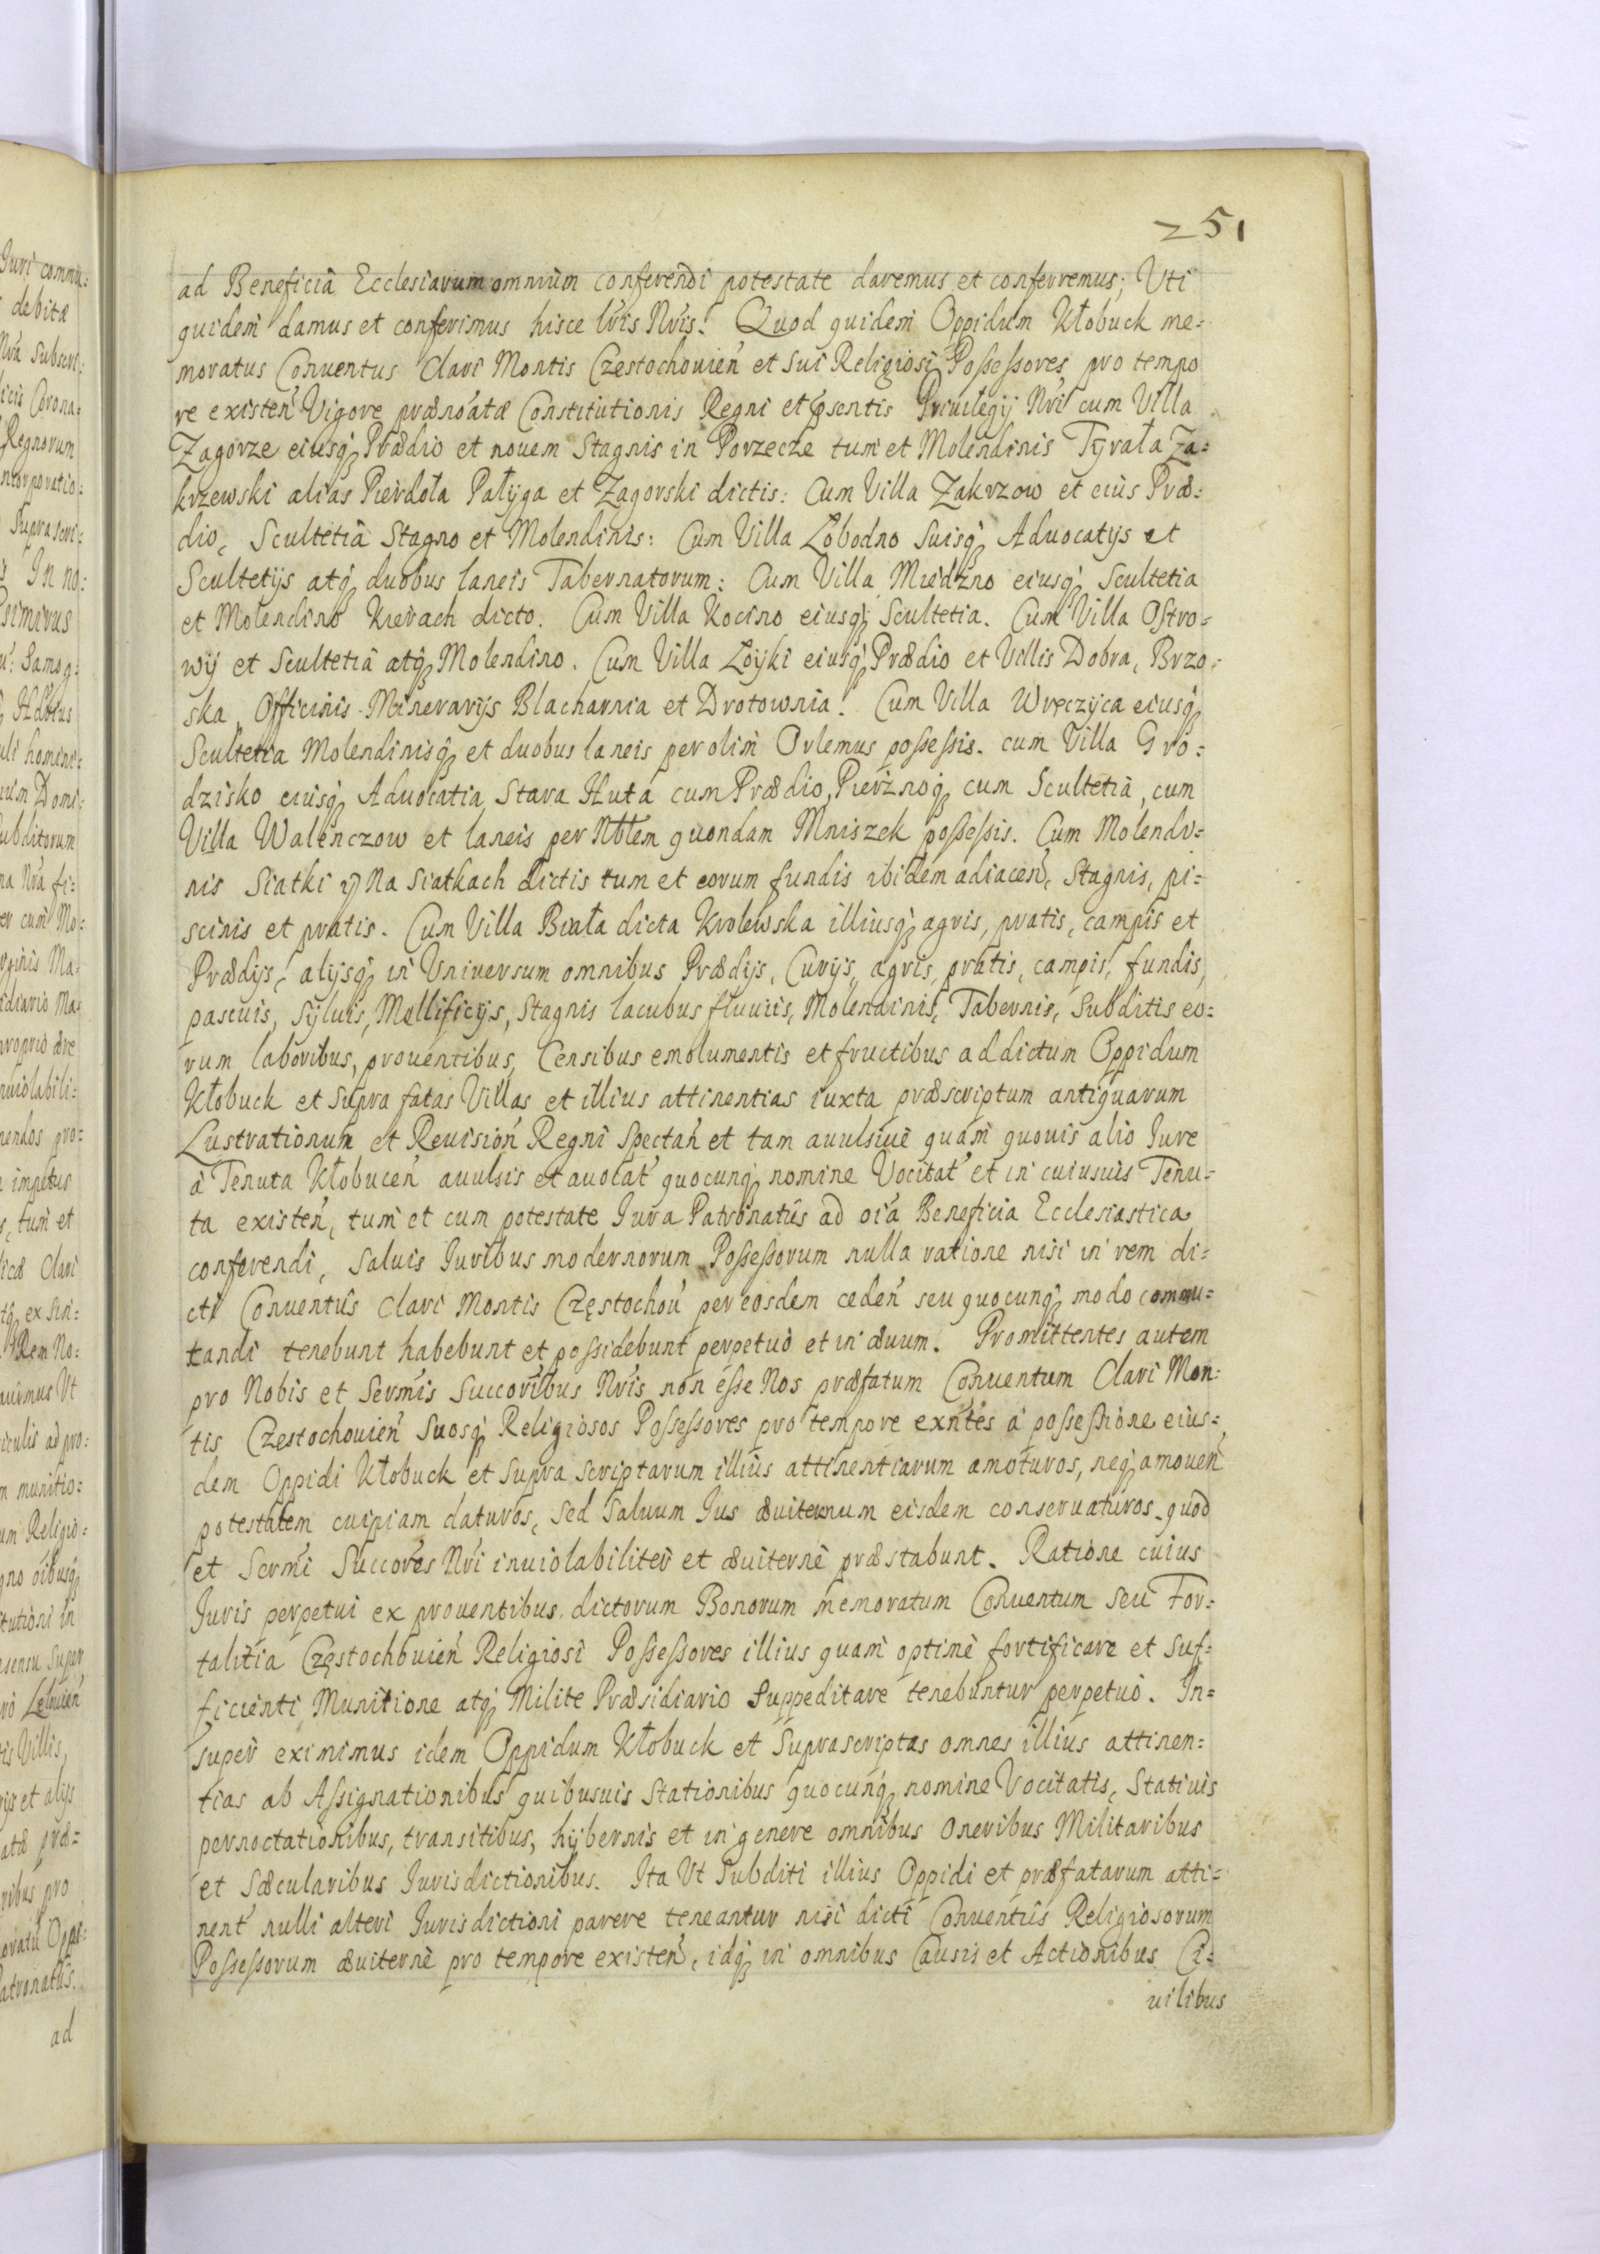 251
ad Beneficia Ecclesiarum omnium conferendi potestate daremus et conferremus; Uti
quidem damus et conferimus hisce lris Nris. Quod quidem Oppidum Kłobuck me=
moratus Conuentus Clari Montis Czestochouien et sui Religiosi Possessores pro tempo
re existen Vigore prænoatæ Constitutionis Regni et psentis Priuilegij Nri cum Villa
Zagorze eiusq Prædio et nouem Stagnis in Porzecze tum et Molendinis Tyrała Za=
krzewski alias Pierdoła Pałyga et Zagorski dictis: Cum Villa Zakrzow et eius Præ=
dio, Scultetia Stagno et Molendinis: Cum Villa Łobodno Suisq Aduocatijs et
Scultetijs atq duobus laneis Tabernatorum: Cum Villa Miedzno eiusq Scultetia
et Molendino Kierach dicto. Cum Villa Kocino eiusq Scultetia. Cum Villa Ostro=
wij et Scultetiâ atq Molendino. Cum Villa Łoyki eiusq Prædio et Villis Dobra, Brzo=
ska, Officinis Minerarijs Blacharnia et Drotownia. Cum Villa Wręczyca eiusq
Scultetia Molendinisq et duobus laneis per olim Orlemus possessis. cum Villa Gro=
dzisko eiusq Aduocatia, Stara Huta cum Prædio, Pierżnoq cum Scultetiâ, cum
Villa Walenczow et laneis per Nblem quondam Mniszek possessis. Cum Molendi=
nis Siatki Na Siatkach dictis tum et eorum fundis ibidem adiacen, Stagnis, pi=
scinis et pratis. Cum Villa Biała dicta Krolewska illiusq agris, pratis, campis et
Prædijs, alijsq in Uniuersum omnibus Prædijs, Curijs, agris, pratis, campis, fundis,
pascuis, syluis, Mellificijs, Stagnis lacubus fluuiis, Molendinis, Tabernis, Subditis eo=
rum laboribus, prouentibus, Censibus emolumentis et fructibus ad dictum Oppidum
Kłobuck et supra fatas Villas et illius attinentias iuxta præscriptum antiquarum
Lustrationum et Reuision Regni spectan et tam auulsiue quam quouis alio Iure
à Tenuta Kłobucen auulsis et auocat quocunq nomine Vocitat et in cuiusuis Tenu=
ta existen, tum et cum potestate Iura Patronatûs ad oia Beneficia Ecclesiastica
conferendi, Saluis Iuribus modernorum Possessorum nulla ratione nisi in rem di=
cti Conuentûs Clari Montis Częstochou per eosdem ceden seu quocunq modo commu=
tandi tenebunt habebunt et possidebunt perpetuò et in æuum. Promittentes autem
pro Nobis et Sermis Succoribus Nris non esse Nos præfatum Conuentum Clari Mon=
tis Częstochouien Suosq Religiosos Possessores pro tempore exntes à possessione eius=
dem Oppidi Kłobuck et supra scriptarum illius attinentiarum amoturos, neq amouen
potestatem cuipiam daturos, sed saluum Ius æuiternum eisdem conseruaturos. quod
et Sermi Succores Nri inuiolabiliter et æuiternè præstabunt. Ratione cuius
Iuris perpetui ex prouentibus dictorum Bonorum memoratum Conuentum seu For=
talitia Częstochouien Religiosi Possessores illius quam optimè fortificare et suf=
ficienti Munitione atq Milite Præsidiario suppeditare tenebuntur perpetuò. In=
super eximimus idem Oppidum Kłobuck et Suprascriptas omnes illius attinen=
tias ab Assignationibus quibusuis Stationibus quocunq nomine Vocitatis, Statiuis
pernoctationibus, transitibus, hybernis et in genere omnibus Oneribus Militaribus
et Sæcularibus Iurisdictionibus. Ita Ut Subditi illius Oppidi et præfatarum atti=
nent nulli alteri Iurisdictioni parere teneantur nisi dicti Conuentûs Religiosorum
Possessorum æuiternè pro tempore existen, idq in omnibus Causis et Actionibus Ci=
uilibus